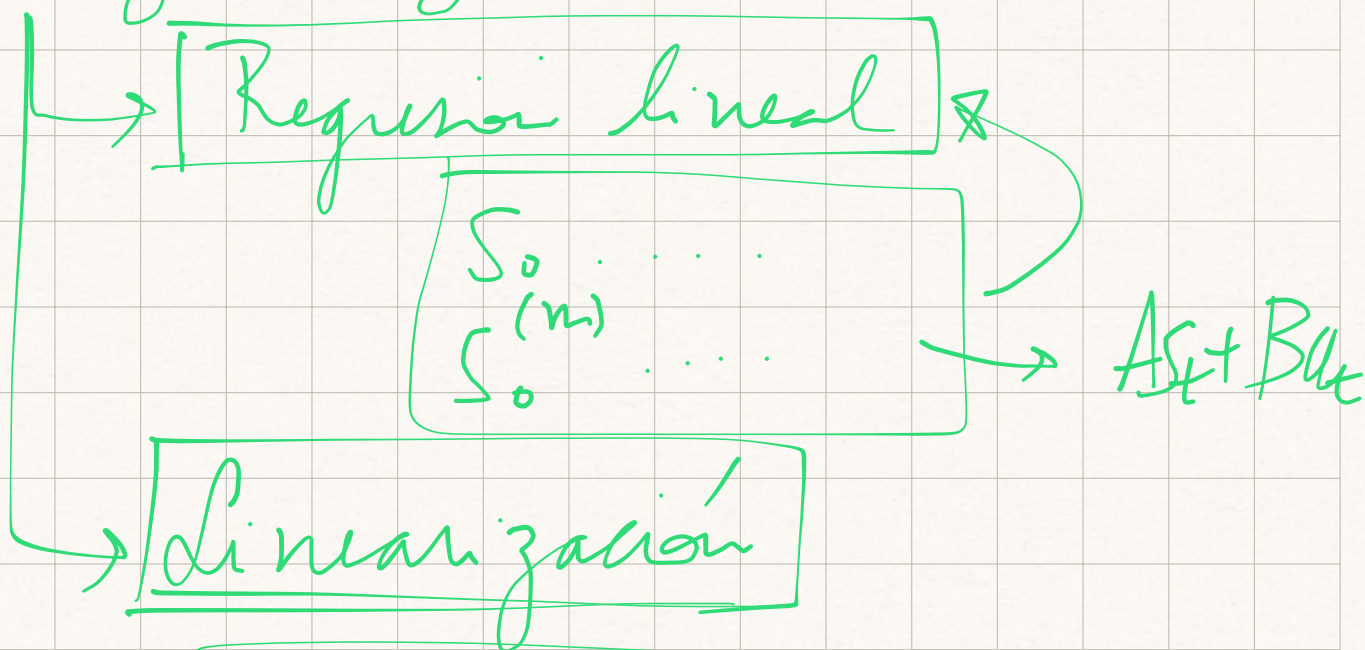 Regresion lineal
S0 . . . .
S0 (m) . . .
ASt + Bat
Linealización